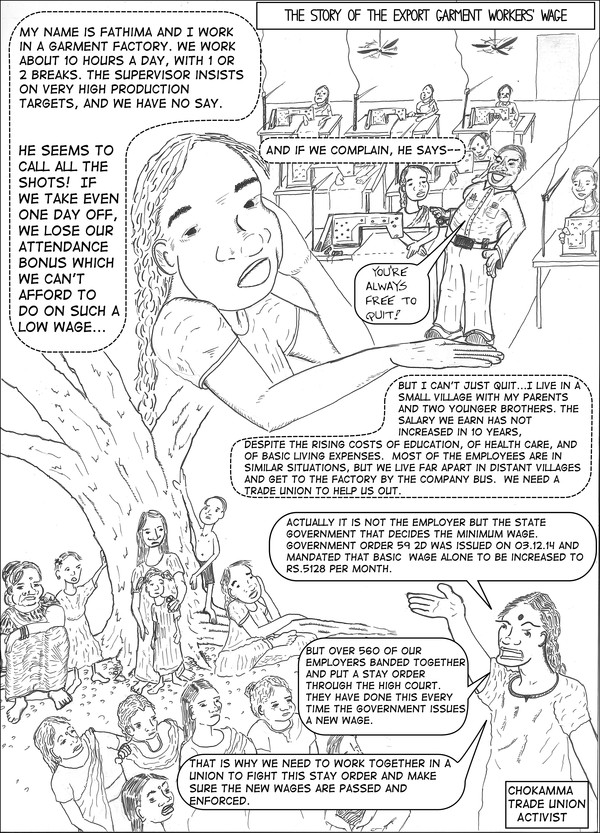 THE STORY OF THE EXPORT GARMENT WORKERS' WAGE
MY NAME IS FATHIMA AND I WORK
IN A GARMENT FACTORY. WE WORK
ABOUT 10 HOURS A DAY, WITH 1 OR
2 BREAKS. THE SUPERVISOR INSISTS
ON VERY HIGH PRODUCTION
TARGETS, AND WE HAVE NO SAY.
HE SEEMS TO
CALL ALL THE
SHOTS! IF
WE TAKE EVEN
ONE DAY OFF,
WE LOSE OUR
ATTENDANCE
BONUS WHICH
WE CAN'T
AFFORD TO
DO ON SUCH A
LOW WAGE...
AND IF WE COMPLAIN, HE SAYS--
YOU'RE
ALWAYS
FREE TO
QUIT!
BUT I CAN'T JUST QUIT...I LIVE IN A
SMALL VILLAGE WITH MY PARENTS
AND TWO YOUNGER BROTHERS. THE
SALARY WE EARN HAS NOT
INCREASED IN 10 YEARS,
DESPITE THE RISING COSTS OF EDUCATION, OF HEALTH CARE, AND
OF BASIC LIVING EXPENSES. MOST OF THE EMPLOYEES ARE IN
SIMILAR SITUATIONS, BUT WE LIVE FAR APART IN DISTANT VILLAGES
AND GET TO THE FACTORY BY THE COMPANY BUS. WE NEED A
TRADE UNION TO HELP US OUT.
ACTUALLY IT IS NOT THE EMPLOYER BUT THE STATE
GOVERNMENT THAT DECIDES THE MINIMUM WAGE.
GOVERNMENT ORDER 59 2D WAS ISSUED ON 03.12.14 AND
MANDATED THAT BASIC WAGE ALONE TO BE INCREASED TO
RS.5128 PER MONTH.
BUT OVER 560 OF OUR
EMPLOYERS BANDED TOGETHER
AND PUT A STAY ORDER
THROUGH THE HIGH COURT.
THEY HAVE DONE THIS EVERY
TIME THE GOVERNMENT ISSUES
A NEW WAGE.
THAT IS WHY WE NEED TO WORK TOGETHER IN A
UNION TO FIGHT THIS STAY ORDER AND MAKE
SURE THE NEW WAGES ARE PASSED AND
ENFORCED.
CHOKAMMA
TRADE UNION
ACTIVIST